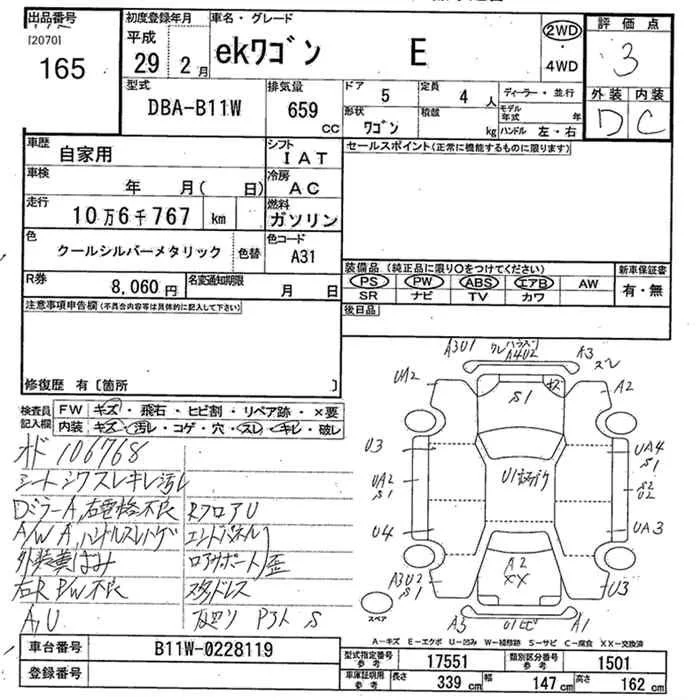 出品番号 初度登録年月 車名・グレード 評価点
[2070]
165 平成 29 2月 ekワゴン E 2WD・4WD 3
型式 DBA-B11W 排気量 659 cc ドア 5 定員 4人 ディーラー・並行 外装 内装
形状 ワゴン 積載 kg モデル年式 年 ハンドル 左・右 D C
車歴 自家用 シフト IAT セールスポイント(正常に機能するものに限ります)
車検 年 月( 日) 冷房 AC
走行 10万6千767 km 燃料 ガソリン
色 クールシルバーメタリック 色替 色コード A31
R券 8,060円 名変通知期限 月 日
装備品 (純正品に限り○をつけてください) 新車保証書
PS PW ABS エアB AW 有・無
SR ナビ TV カワ
後日品
注意事項申告欄(不具合内容等は具体的に記入して下さい)
修復歴 有 [箇所 ]
検査員記入欄 FW キズ・飛石・ヒビ割・リペア跡・×要
内装 キズ・汚レ・コゲ・穴・スレ・キレ・破レ
オド 106768
シートシワスレキレ汚レ
Dミラー A,右電格不良 RフロアU
A/W A,ハンドルスレハゲ エンドパネル
外装糞はみ ロアサポート 歪
右R P/W不良 スタッドレス
A,U S
A3U1 A4U2 A3 ズレ
UA2 S1 A2
U3 UA4 S1
UA2 S1 U1 S2 U2
U4 UA3
A3U2 S1 A2 XX U3
スペア A3 A1
A-キズ E-エクボ U-凹み W-補修跡 S-サビ C-腐食 XX-交換済
車台番号 B11W-0228119 型式指定番号 参考 17551 類別区分番号 参考 1501
登録番号 車庫証明用 参考 長さ 339 cm 幅 147 cm 高さ 162 cm